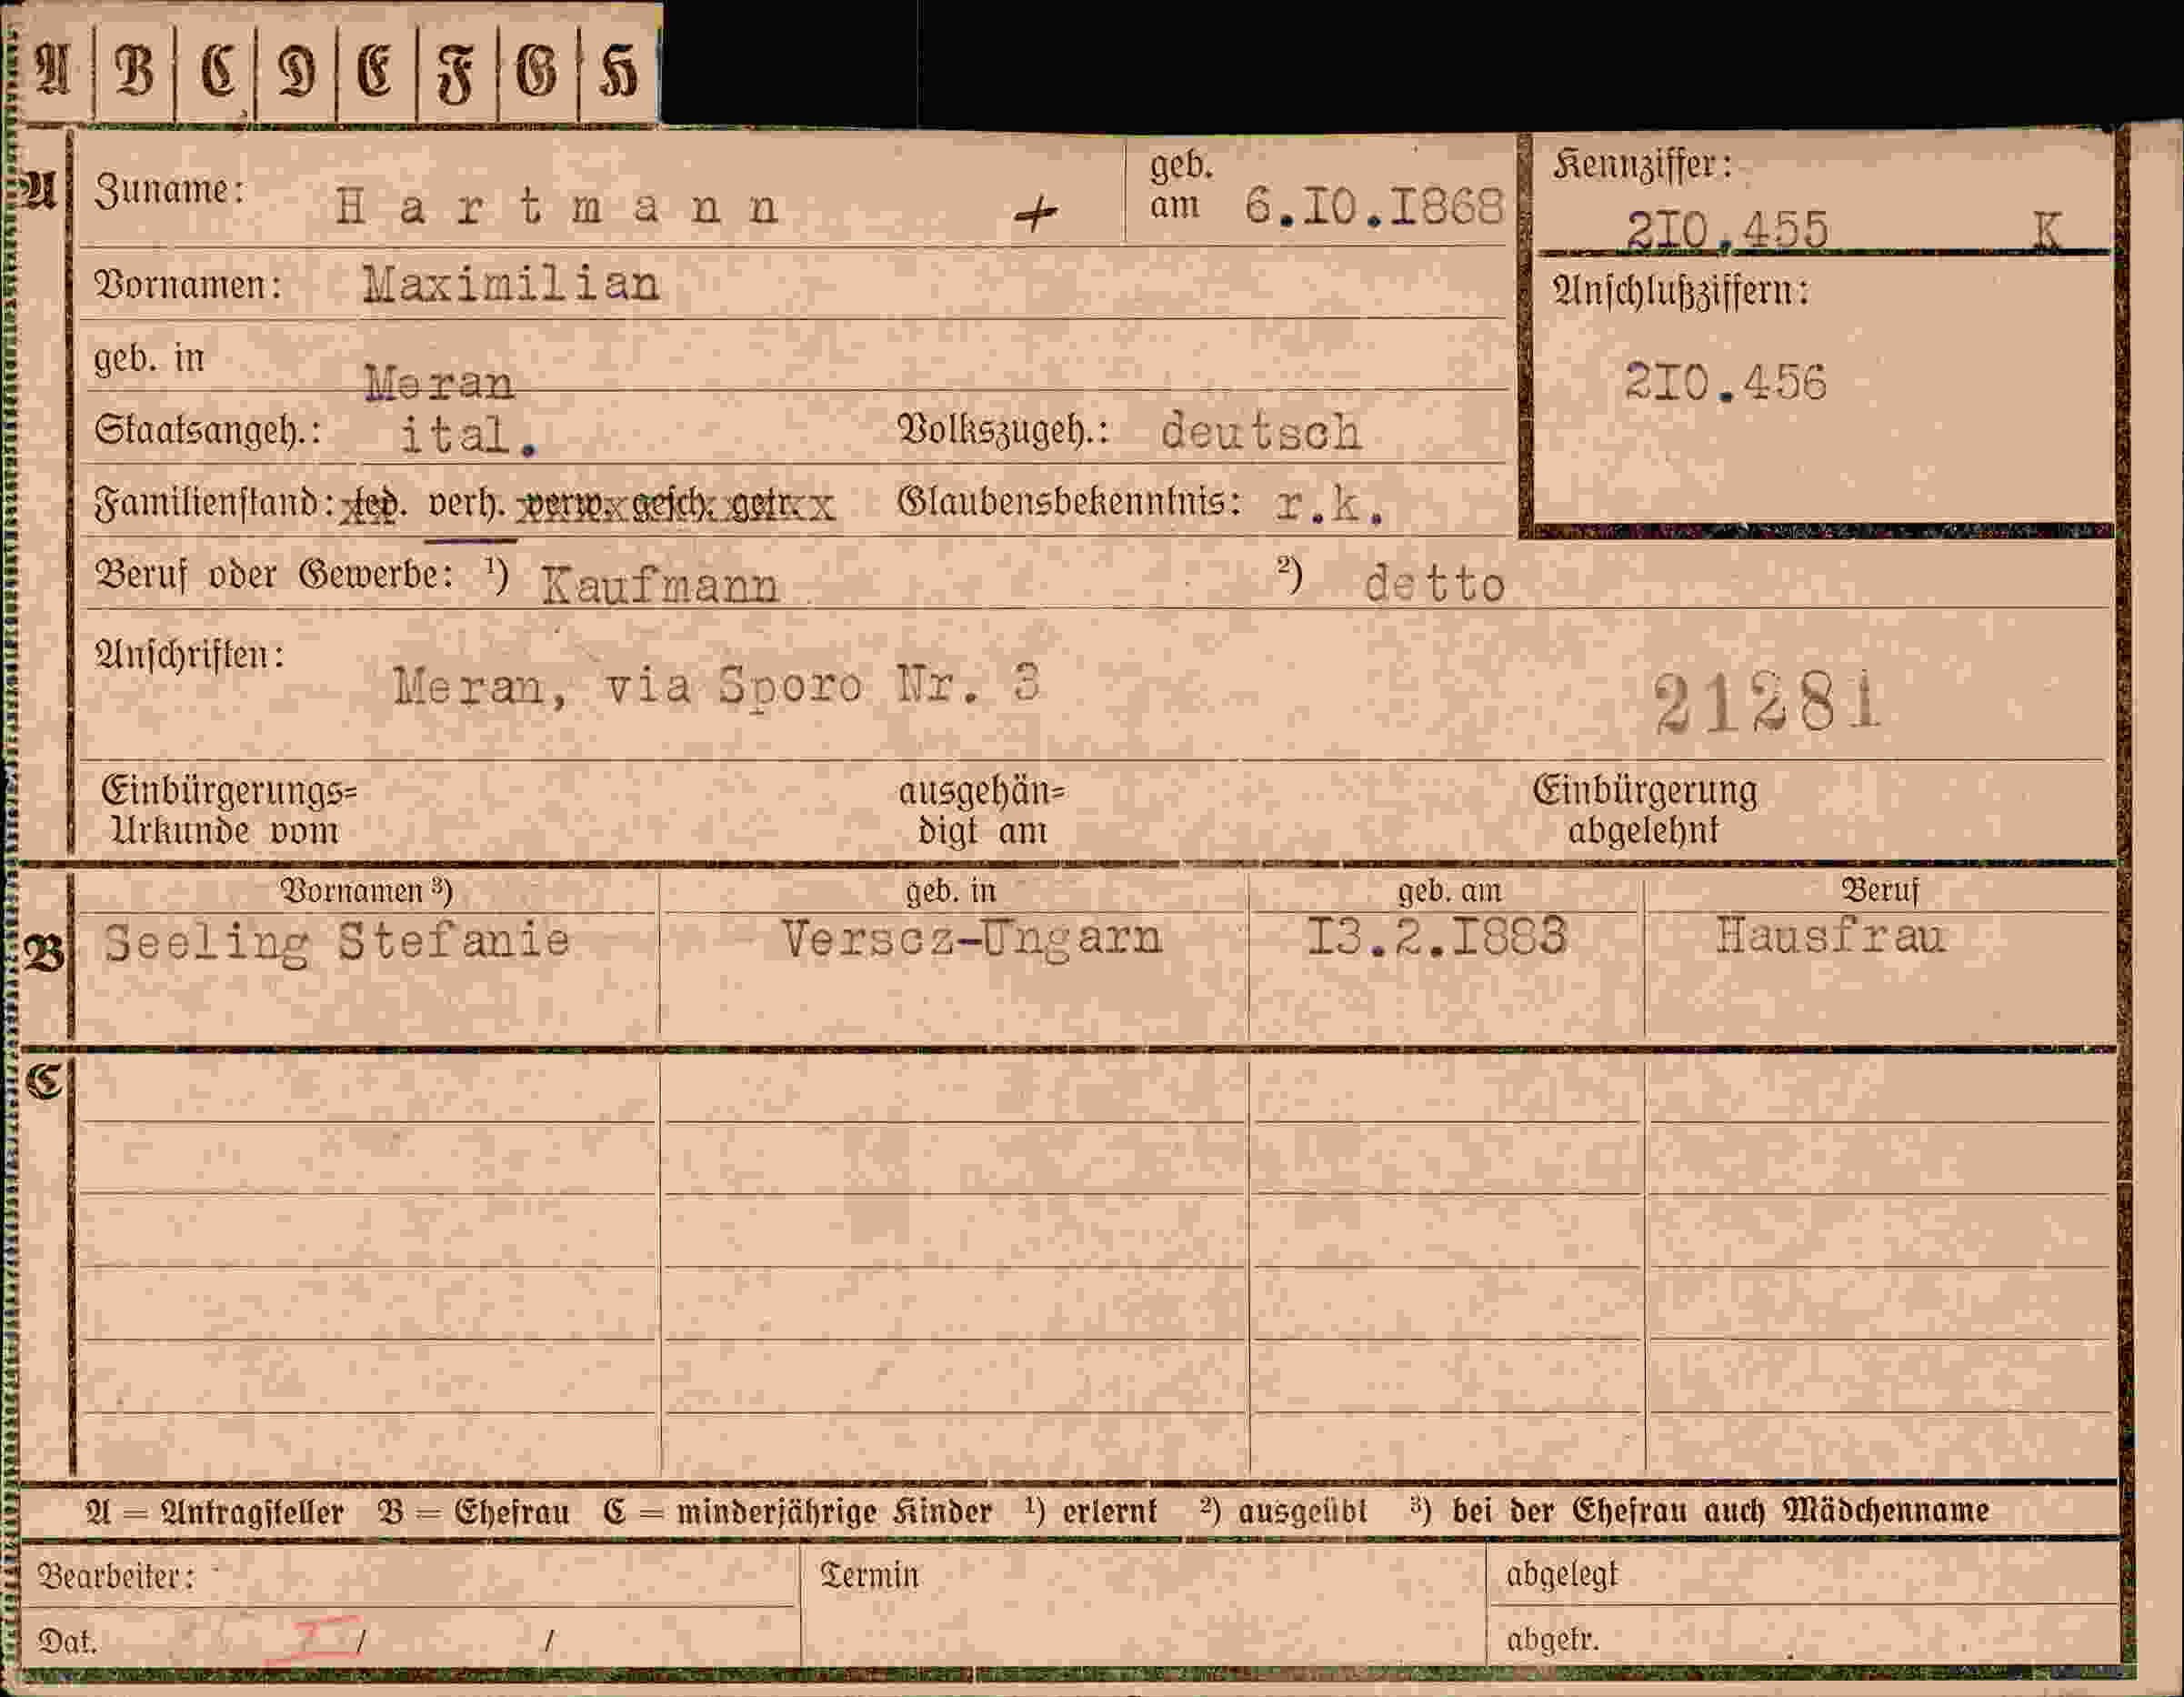 A B C D E F G H
A Zuname: Hartmann + geb. am 6.IO.I868
Kennziffer: 2IO.455 K
Vornamen: Maximilian
Anschlußziffern: 2IO.456
geb. in Meran
Staatsangeh.: ital. Volkszugeh.: deutsch
Familienstand: led. verh. verw. gesch. getr. Glaubensbekenntnis: r.k.
Beruf oder Gewerbe: ¹) Kaufmann ²) detto
Anschriften: Meran, via Sporo Nr. 3 21281
Einbürgerungs= ausgehän= Einbürgerung
Urkunde vom digt am abgelehnt
Vornamen ³) geb. in geb. am Beruf
B Seeling Stefanie Verscz-Ungarn I3.2.I883 Hausfrau
C
A = Antragsteller B = Ehefrau C = minderjährige Kinder ¹) erlernt ²) ausgeübt ³) bei der Ehefrau auch Mädchenname
Bearbeiter: Termin abgelegt
Dat. / / abgetr.